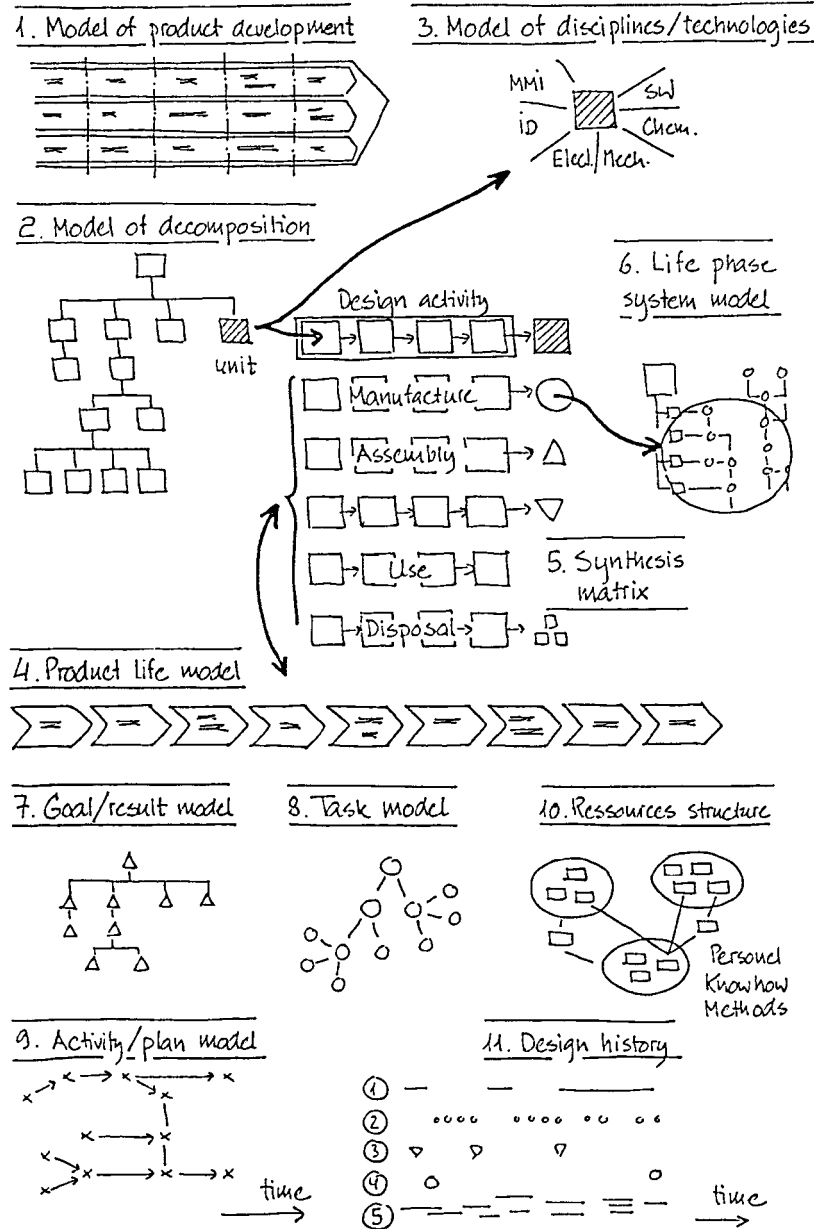 1. Model of product development
3. Model of disciplines/technologies
MMi
SW
iD
Chem.
Elect./Mech.
2. Model of decomposition
6. Life phase
system model
Design activity
unit
Manufacture
Assembly
Use
5. Synthesis
matrix
Disposal
4. Product life model
7. Goal/result model
8. Task model
10. Ressources structure
Personel
Knowhow
Methods
9. Activity/plan model
11. Design history
1
2
3
4
5
time
time